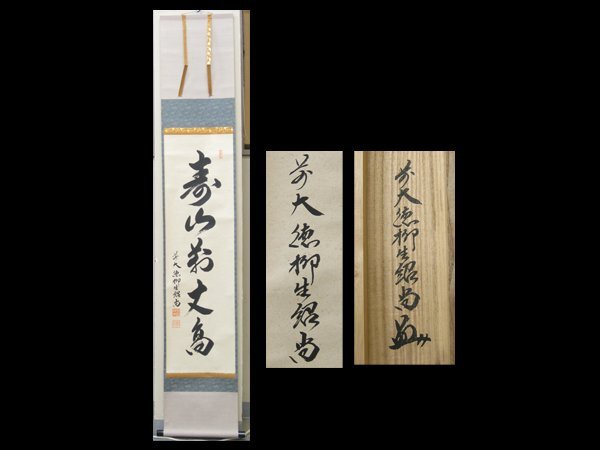 寿山萬丈高
前大徳柳生紹尚
前大徳柳生紹尚
前大徳柳生紹尚